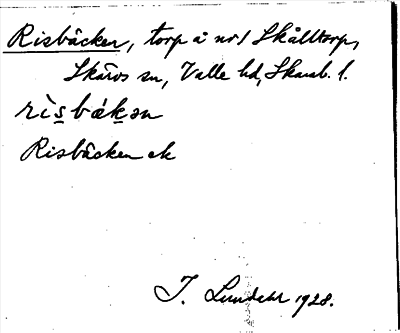 Risbäcken, torp å nr 1 Skålltorp,
Skärvs sn, Valle hd, Skarab. l.
rìsbäkən
Risbäcken ek
I. Lundahl 1928.